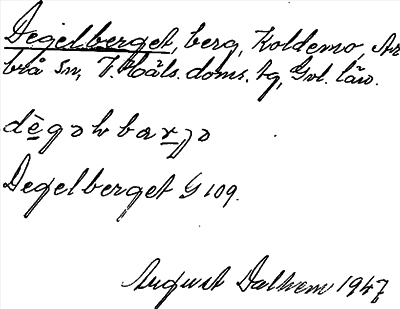 Degelberget, berg, Koldemo, Ar
brå sn, V. Häls. doms. tg, Gvl. län.
dègəlbarjə
Degelberget G 109.
August Dalhem 1947